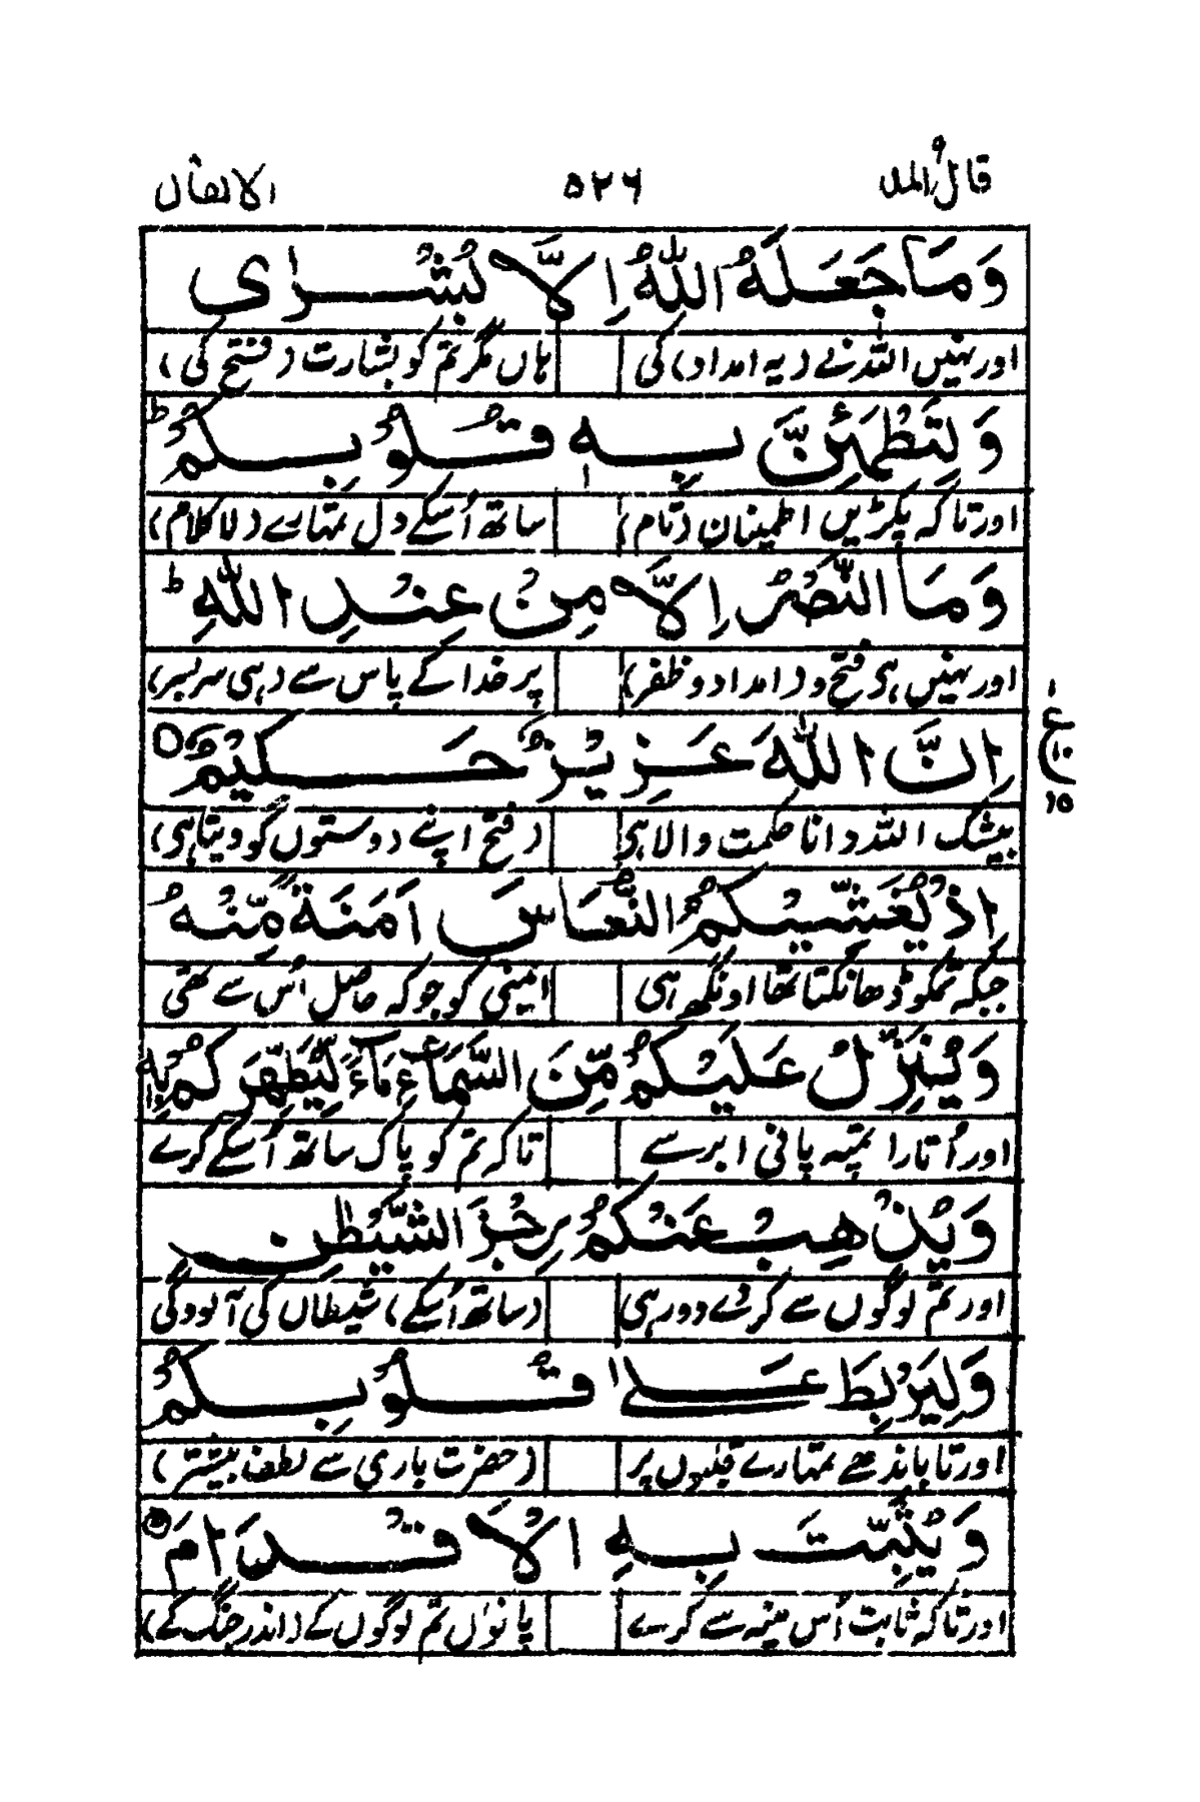 قال الملا ۹ ۵۲۶ الانفال
وَمَا جَعَلَهُ اللّٰهُ اِلَّا بُشْرٰى
اور نہیں اللہ نے (یہ امداد) کی ہاں مگر تم کو بشارت (فتح کی)
وَلِتَطْمَئِنَّ بِهٖ قُلُوْبُكُمْ ؕ
اور تاکہ پکڑیں اطمینان (تام) ساتھ اُسکے دل تمہارے (لا کلام)
وَمَا النَّصْرُ اِلَّا مِنْ عِنْدِ اللّٰهِ ؕ
اور نہیں ہی فتح و (امداد و ظفر) پر خدا کے پاس سے (ہی سر بسر)
اِنَّ اللّٰهَ عَزِيْزٌ حَكِيْمٌ ۝
۱ ع ۱۰ ۱۵
بیشک اللہ دانا حکمت والا ہی (فتح اپنے دوستوں کو دیتا ہی)
اِذْ يُغَشِّيْكُمُ النُّعَاسَ اَمَنَةً مِّنْهُ
جبکہ تمکو ڈھانکتا تھا اونگھ ہی ایمنی کو جو کہ حاصل اُس سے تھی
وَيُنَزِّلُ عَلَيْكُمْ مِّنَ السَّمَآءِ مَآءً لِّيُطَهِّرَكُمْ بِهٖ
اور اُتارا تمپہ پانی ابر سے تاکہ تم کو پاک ساتھ اُسکے کرے
وَيُذْهِبَ عَنْكُمْ رِجْزَ الشَّيْطٰنِ
اور تم لوگوں سے کردے دور ہی (ساتھ اُسکے) شیطاں کی آلودگی
وَلِيَرْبِطَ عَلٰى قُلُوْبِكُمْ
اور تا باندھے تمہارے قلبوں پر (حضرت باری سے لطف بیشتر)
وَيُثَبِّتَ بِهِ الْاَقْدَامَ
اور تاکہ ثابت اُس مینہ سے کرے پانوٴں تم لوگوں کے (اندر جنگ کے)